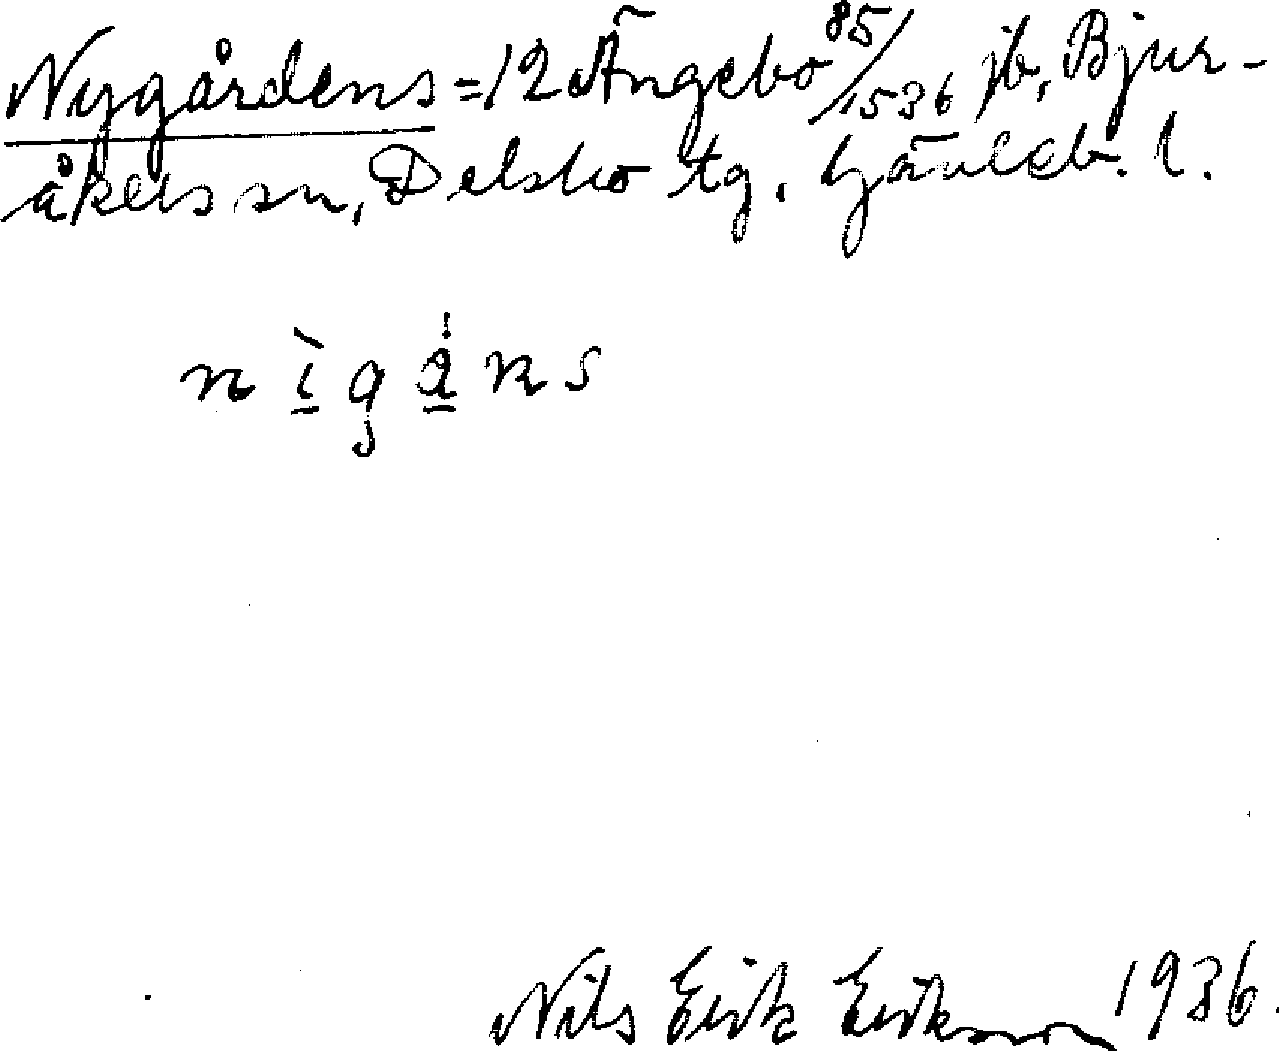 Nygårdens = 12 Ängebo 85/1536 jb, Bjur-
åkers sn, Delsbo tg. Gävleb. l.
nìgáns
Nils Erik Eriksson 1936.